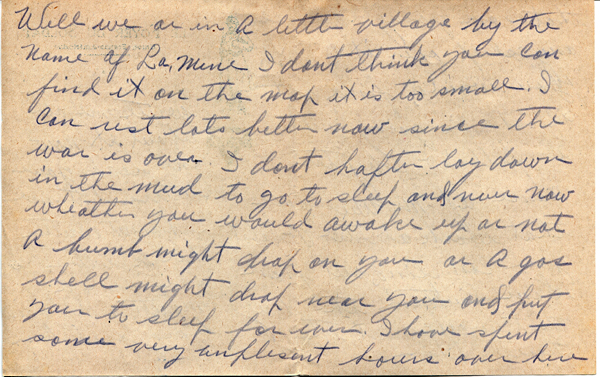 Well we ar in A little village by the
name of La, Mene I dont think you can
find it on the map it is too small. I
can rest lots better now since the
war is over. I dont hafter lay down
in the mud to go to sleep and never now
wheather you would awake up or not
A bumb might drop on you or A gas
shell might drop near you and put
you to sleep for ever. I have spent
some very unplesent hours over here